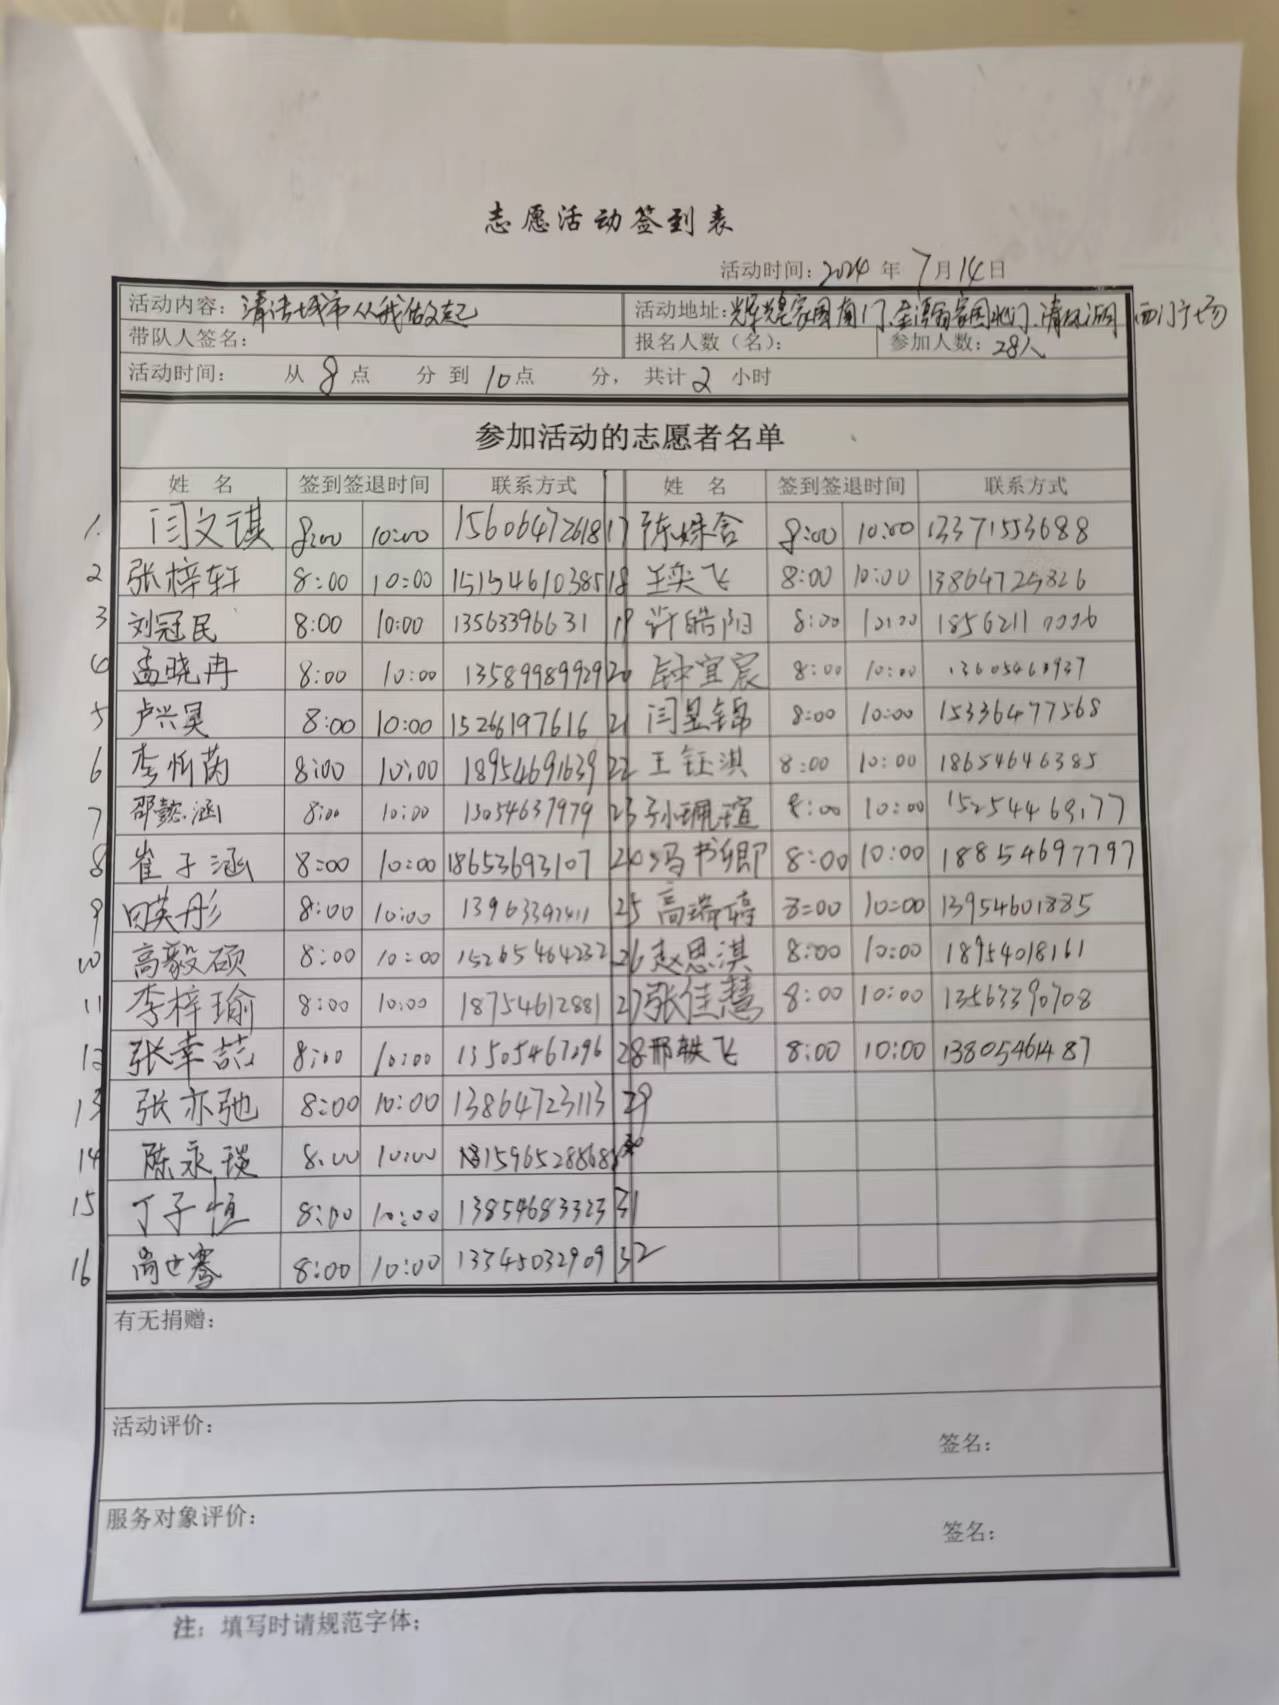 志愿活动签到表
活动时间: 2024 年 7月14日
活动内容: 清洁城市从我做起 活动地址: 辉煌家园南门、金湾家园北门、清风湖 西门广场
带队人签名: 报名人数（名）: 参加人数: 28人
活动时间: 从 8 点 分 到 10点 分, 共计 2 小时
参加活动的志愿者名单
姓 名 签到签退时间 联系方式 姓 名 签到签退时间 联系方式
1. 闫文琪 8:00 10:00 15606472618 17 陈姝含 8:00 10:00 13371553688
2 张梓轩 8:00 10:00 15154610385 18 王奕飞 8:00 10:00 13864725826
3 刘冠民 8:00 10:00 13563396631 19 许皓阳 8:00 10:00
4 孟晓冉 8:00 10:00 13589989929 20 钟宜宸 8:00 10:00 13605460937
5 卢兴昊 8:00 10:00 15266197616 21 闫昱锦 8:00 10:00 15336477568
6 李忻芮 8:00 10:00 18954691639 22 王钰淇 8:00 10:00 18654646385
7 邵懿涵 8:00 10:00 13054637979 23 孙珮瑄 8:00 10:00 15254463177
8 崔子涵 8:00 10:00 18653693107 24 冯书卿 8:00 10:00 18854697797
9 田英彤 8:00 10:00 25 高瑞 8:00 10:00 13954601885
10 高毅硕 8:00 10:00 15265464232 26 赵思淇 8:00 10:00 18954018161
11 李梓瑜 8:00 10:00 18754612881 27 张佳慧 8:00 10:00 13563390708
12 张幸喆 8:00 10:00 13505467296 28 邢轶飞 8:00 10:00 13805461487
13 张亦弛 8:00 10:00 13864723113 29
14 陈永琰 8:00 10:00 15965288686 30
15 丁子恒 8:00 10:00 13854683323 31
16 尚世骞 8:00 10:00 13345032909 32
有无捐赠:
活动评价:
签名:
服务对象评价:
签名:
注: 填写时请规范字体;